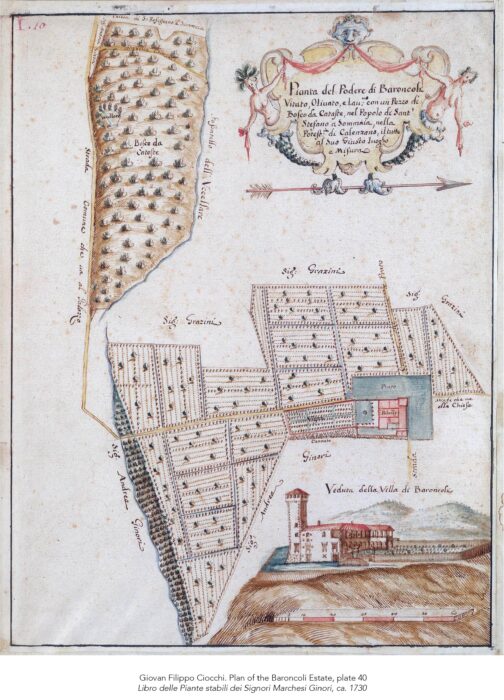 L. 40
Pianta del Podere di Baroncoli
Vitato Olivato, e Lau.° con un Pezzo di
Bosco da Cataste, nel Popolo di Sant'
Stefano à Sommaia, nella
Potest.ia di Calenzano, il tutto
al Suo Giusto luogo
Misura
Bosco da
Cataste
Strada Comune che va di
Fossatello dell' Uccellare
Sig.i Grazini
Sig.i Grazini
Sig.i Grazini
Prato
Ginori
Sig. Andrea Ginori
Sig. Andrea
Strada
Strada che va
alla Chiesa
Veduta della Villa di Baroncoli
Giovan Filippo Ciocchi. Plan of the Baroncoli Estate, plate 40
Libro delle Piante stabili dei Signori Marchesi Ginori, ca. 1730